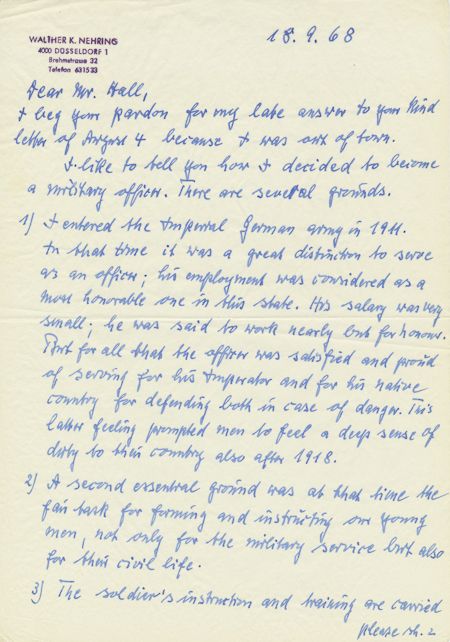 WALTHER K. NEHRING
4000 DÜSSELDORF 1
Brehmstrasse 32
Telefon 631533
18. 9. 68
Dear Mr. Hall,
I beg your pardon for my late answer to your kind
letter of August 4 because I was out of town.
I like to tell you how I decided to become
a military officer. There are several grounds.
1) I entered the Imperial German army in 1911.
In that time it was a great distinction to serve
as an officer; his employment was considered as a
most honorable one in this state. His salary was very
small; he was said to work nearly but for honour.
But for all that the officer was satisfied and proud
of serving for his Imperator and for his native
country for defending both in case of danger. This
latter feeling prompted men to feel a deep sense of
duty to their country also after 1918.
2) A second essential ground was at that time the
fair task for forming and instructing our young
men, not only for the military service but also
for their civil life.
3) The soldier's instruction and training are carried
please sh. 2